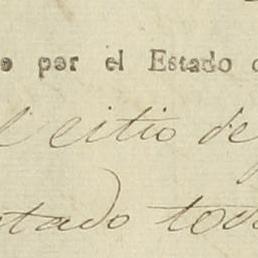 por el Estado
el citio de
estado todo